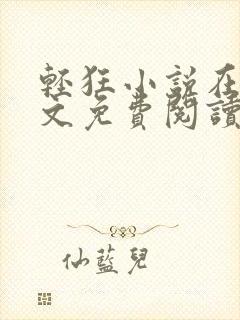 輕狂小說在
文免費閱讀
仙藍兒